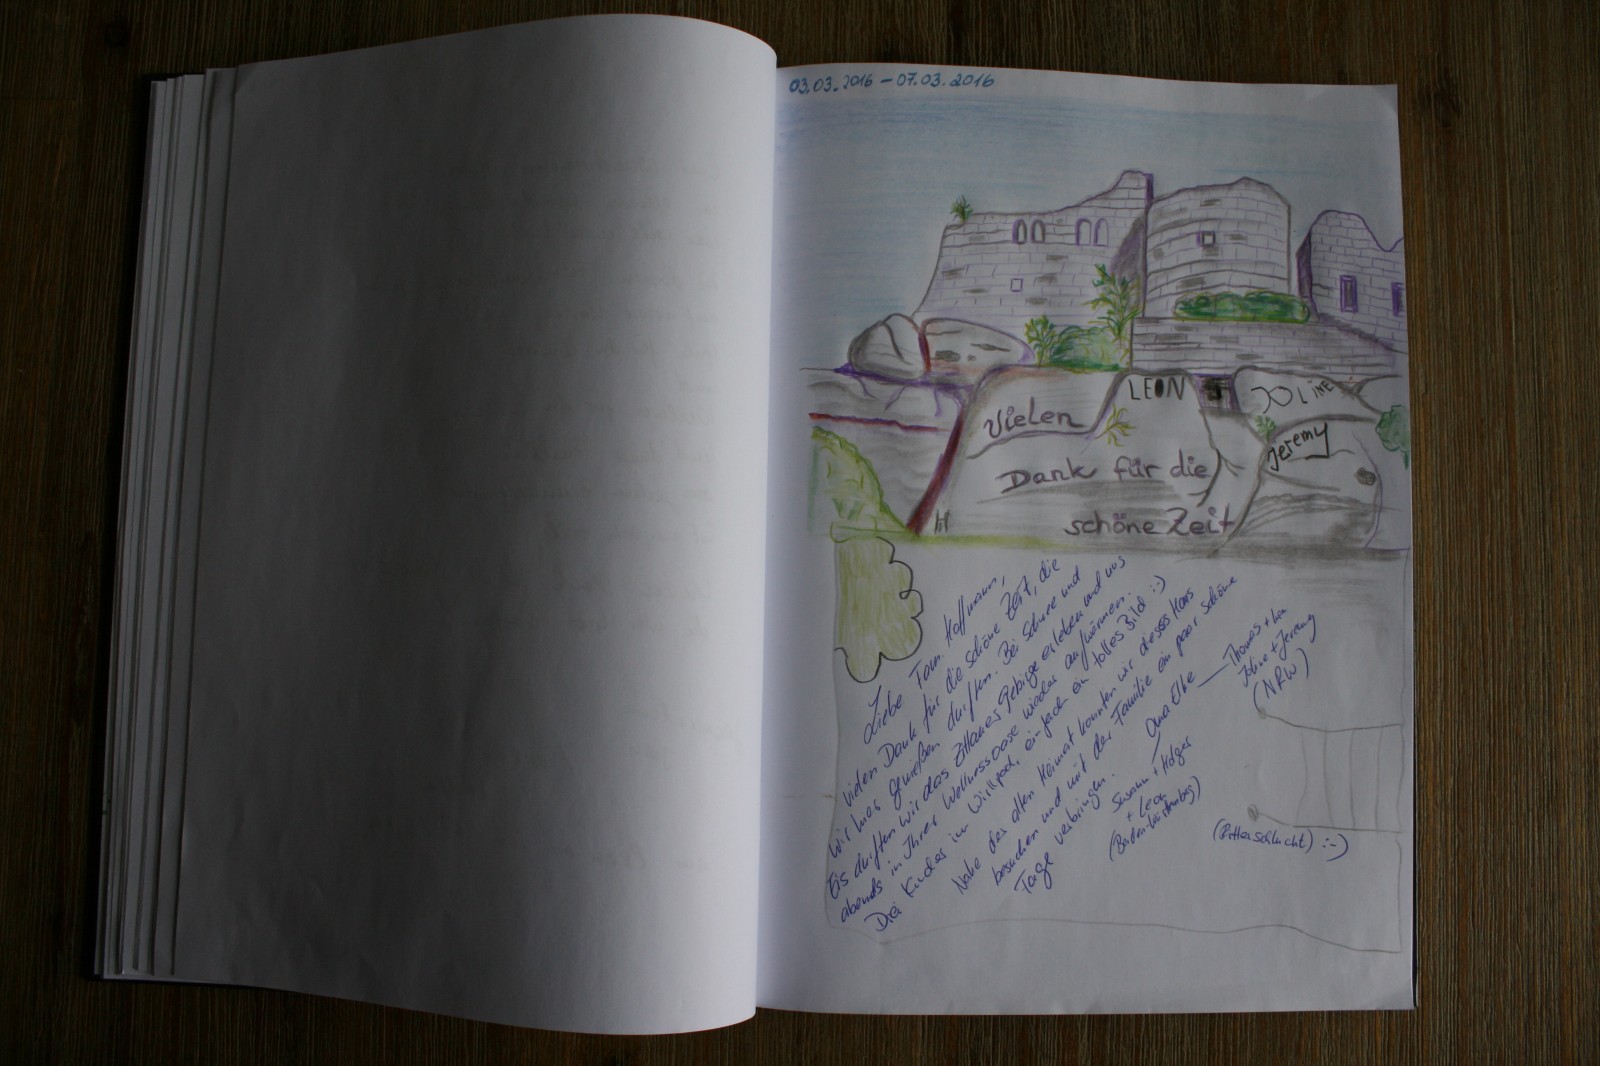 03.03.2016 – 07.03.2016
LEON
JOLINE
Vielen
Jeremy
Dank für die
schöne Zeit
Liebe Fam. Hoffmann,
vielen Dank für die schöne Zeit, die
wir hier genießen durften. Bei Schnee und
Eis durften wir das Zittauer Gebirge erleben und uns
abends in Ihrer Wellnessoase wieder aufwärmen.
Drei Kinder im Wirllpool, einfach ein tolles Bild :-)
Nahe der alten Heimat konnten wir dieses Haus
besuchen und mit der Familie ein paar schöne
Tage verbringen.
Oma Elke
Thomas +
Joline + Jeremy
(NRW)
Susann + Holger
+ Leon
(Baden-Württemberg)
:-)